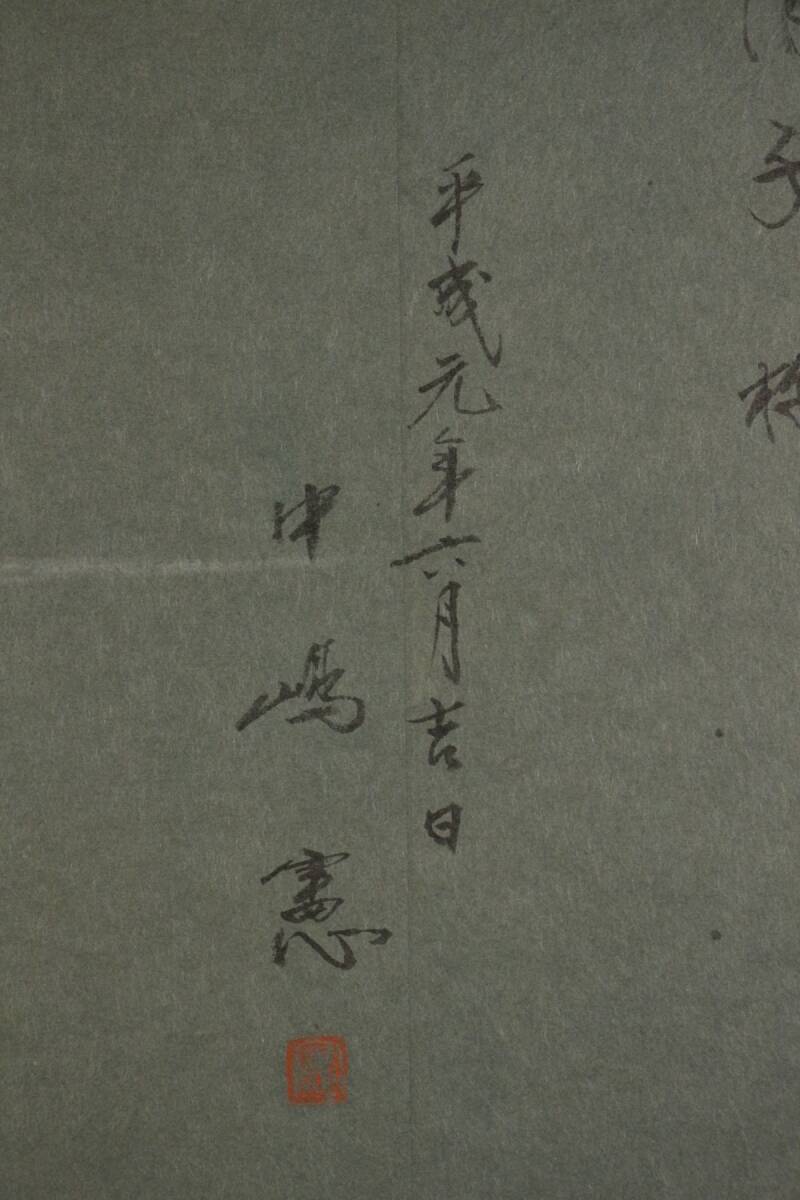 子様
平成元年六月吉日
中嶋憲